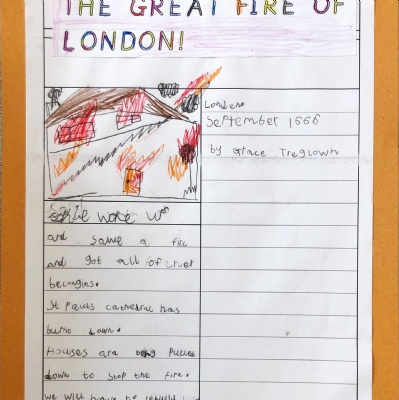 THE GREAT FIRE OF
LONDON!
London
September 1666
by Grace Treglown
woke
and same a fire
and got all of her
St Pauls cathedral has
burnt down.
Houses are being Pulled
down to stop the fire.
we will have to rebuild